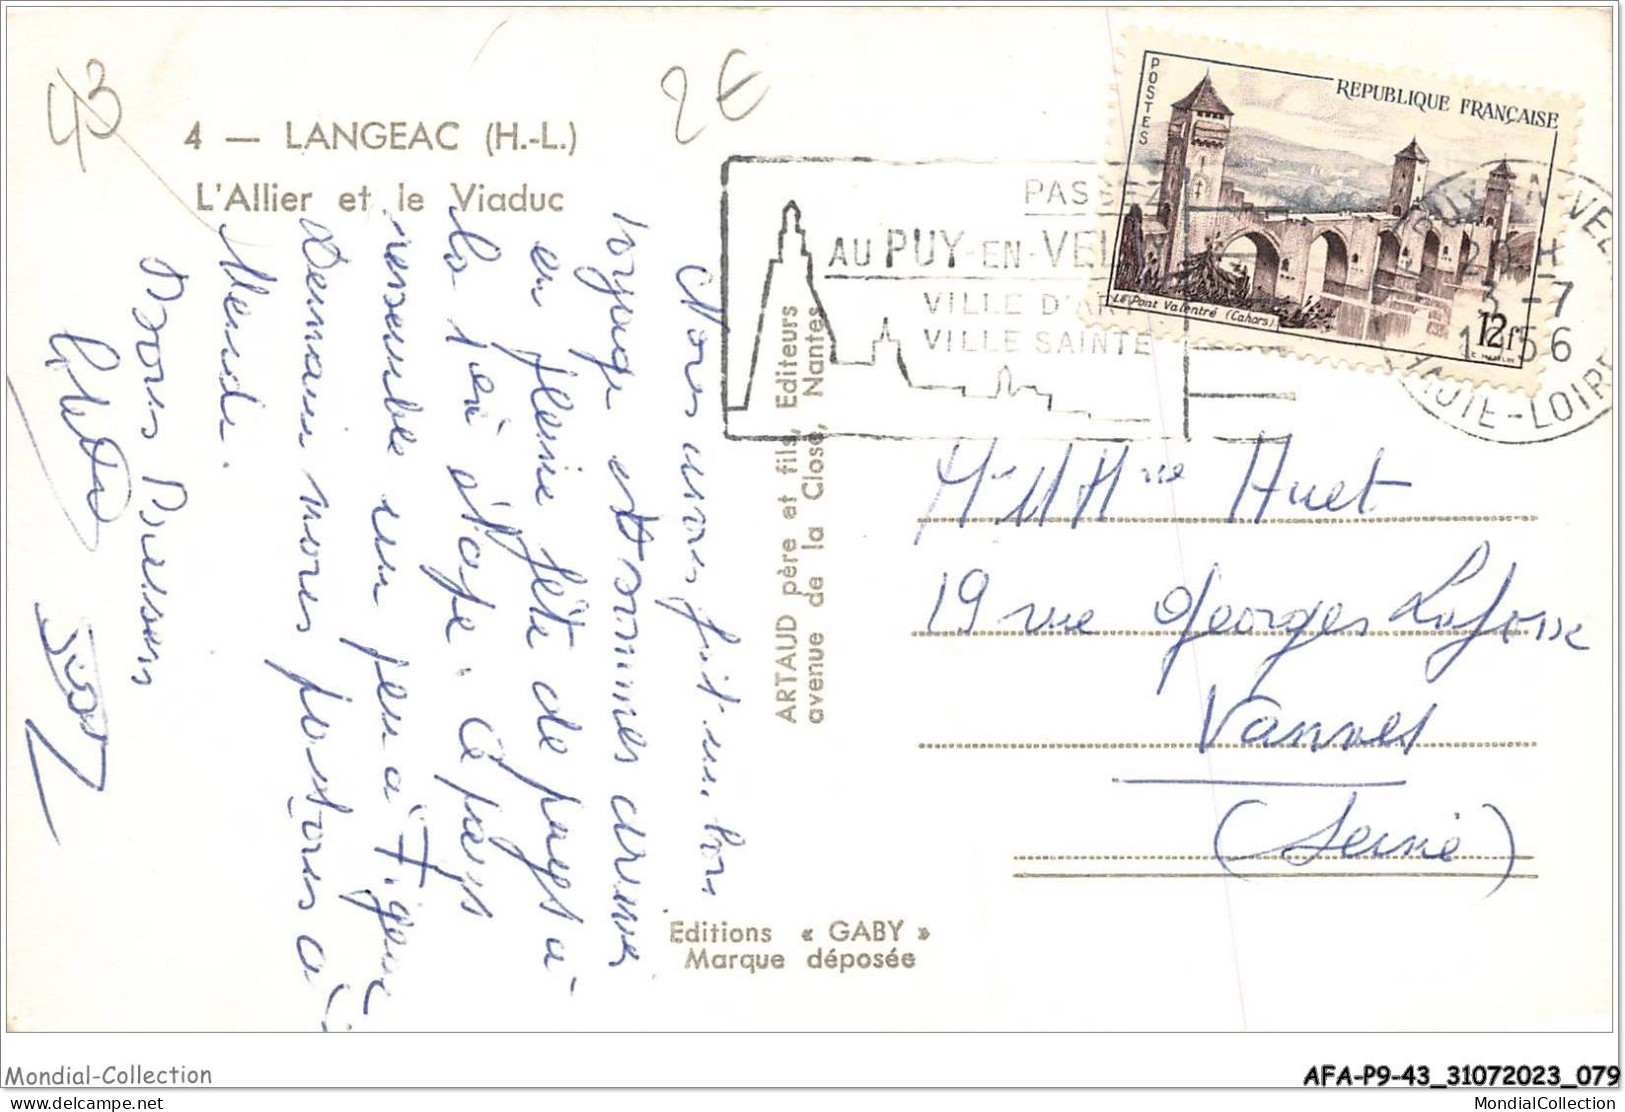 43
2€
4 — LANGEAC (H.-L.)
L'Allier et le Viaduc
Nous avons fait un bon
voyage et sommes arrivés
en pleine fête de pays à
la 1ère étape. Ce pays
ressemble un peu à Figeac
Demain nous partons à
Mende.
Bons Baisers
ARTAUD père et fils, Editeurs
avenue de la Close, Nantes
Editions « GABY »
Marque déposée
PASSEZ
AU PUY-EN-VELAY
VILLE D'ART
VILLE SAINTE
POSTES
REPUBLIQUE FRANÇAISE
Le Pont Valentré (Cahors)
12f
LE PUY-EN-VELAY
20 H
3 - 7
1956
HAUTE-LOIRE
Mr et Mme Huet
19 rue Georges Lafosse
Vanves
(Seine)
Mondial-Collection
AFA-P9-43_31072023_079
delcampe.net
MondialCollection